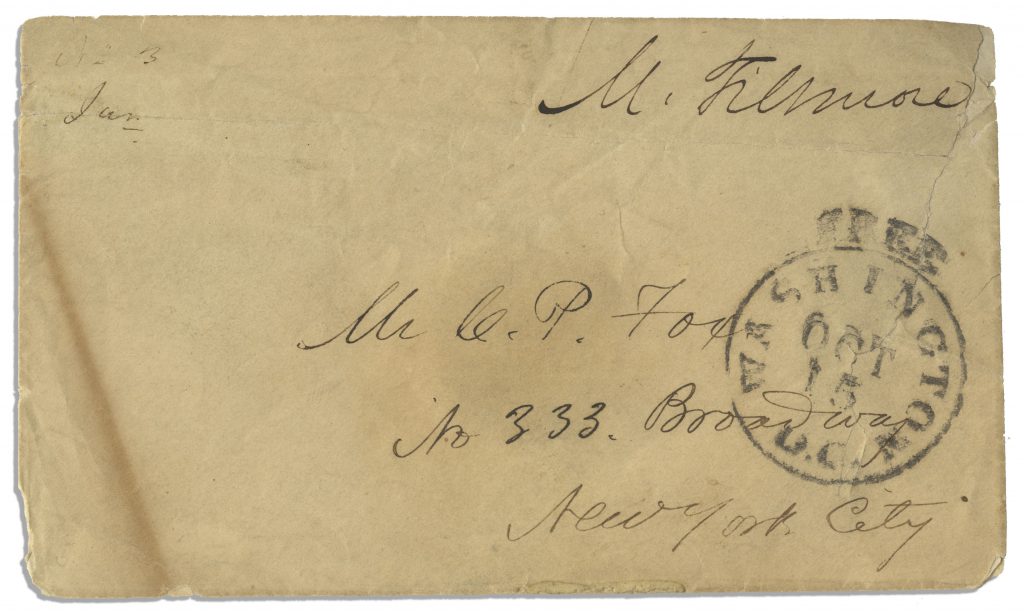 3
Jan
M. Fillmore
FREE
WASHINGTON D.C.
OCT
15
Mr C. P. Fox
No 333. Broadway
New York City